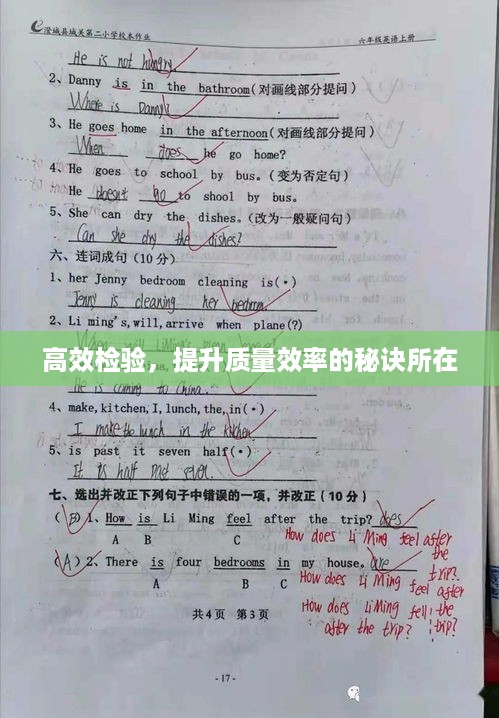 澄城县城关第二小学校本作业 六年级英语上册
He is not hungry.
2、Danny is in the bathroom(对画线部分提问)
Where is Danny?
3、He goes home in the afternoon(对画线部分提问)
When does he go home?
4、He goes to school by bus。(变为否定句)
He doesn't go to shool by bus.
5、She can dry the dishes.(改为一般疑问句)
Can she dry the dishes?
六、连词成句(10分)
1、her Jenny bedroom cleaning is(.)
Jenny is cleaning her bedroom.
2、Li ming's,will,arrive when plane(?)
高效检验，提升质量效率的秘诀所在
He is coming to China.
4、make,kitchen,I,lunch,the,in(.)
I make the lunch in the kitchen
5、is past it seven half(.)
It is half past seven.
七、选出并改正下列句子中错误的一项,并改正(10分)
(B)1、How is Li Ming feel after the trip? does
A B C
How does Li Ming feel after the trip?
(A)2、There is four bedrooms in my house. are
A B C
How does Li Ming feel after
How does Li Ming fell the
after the trip? trip?
共4页 第3页
-17-